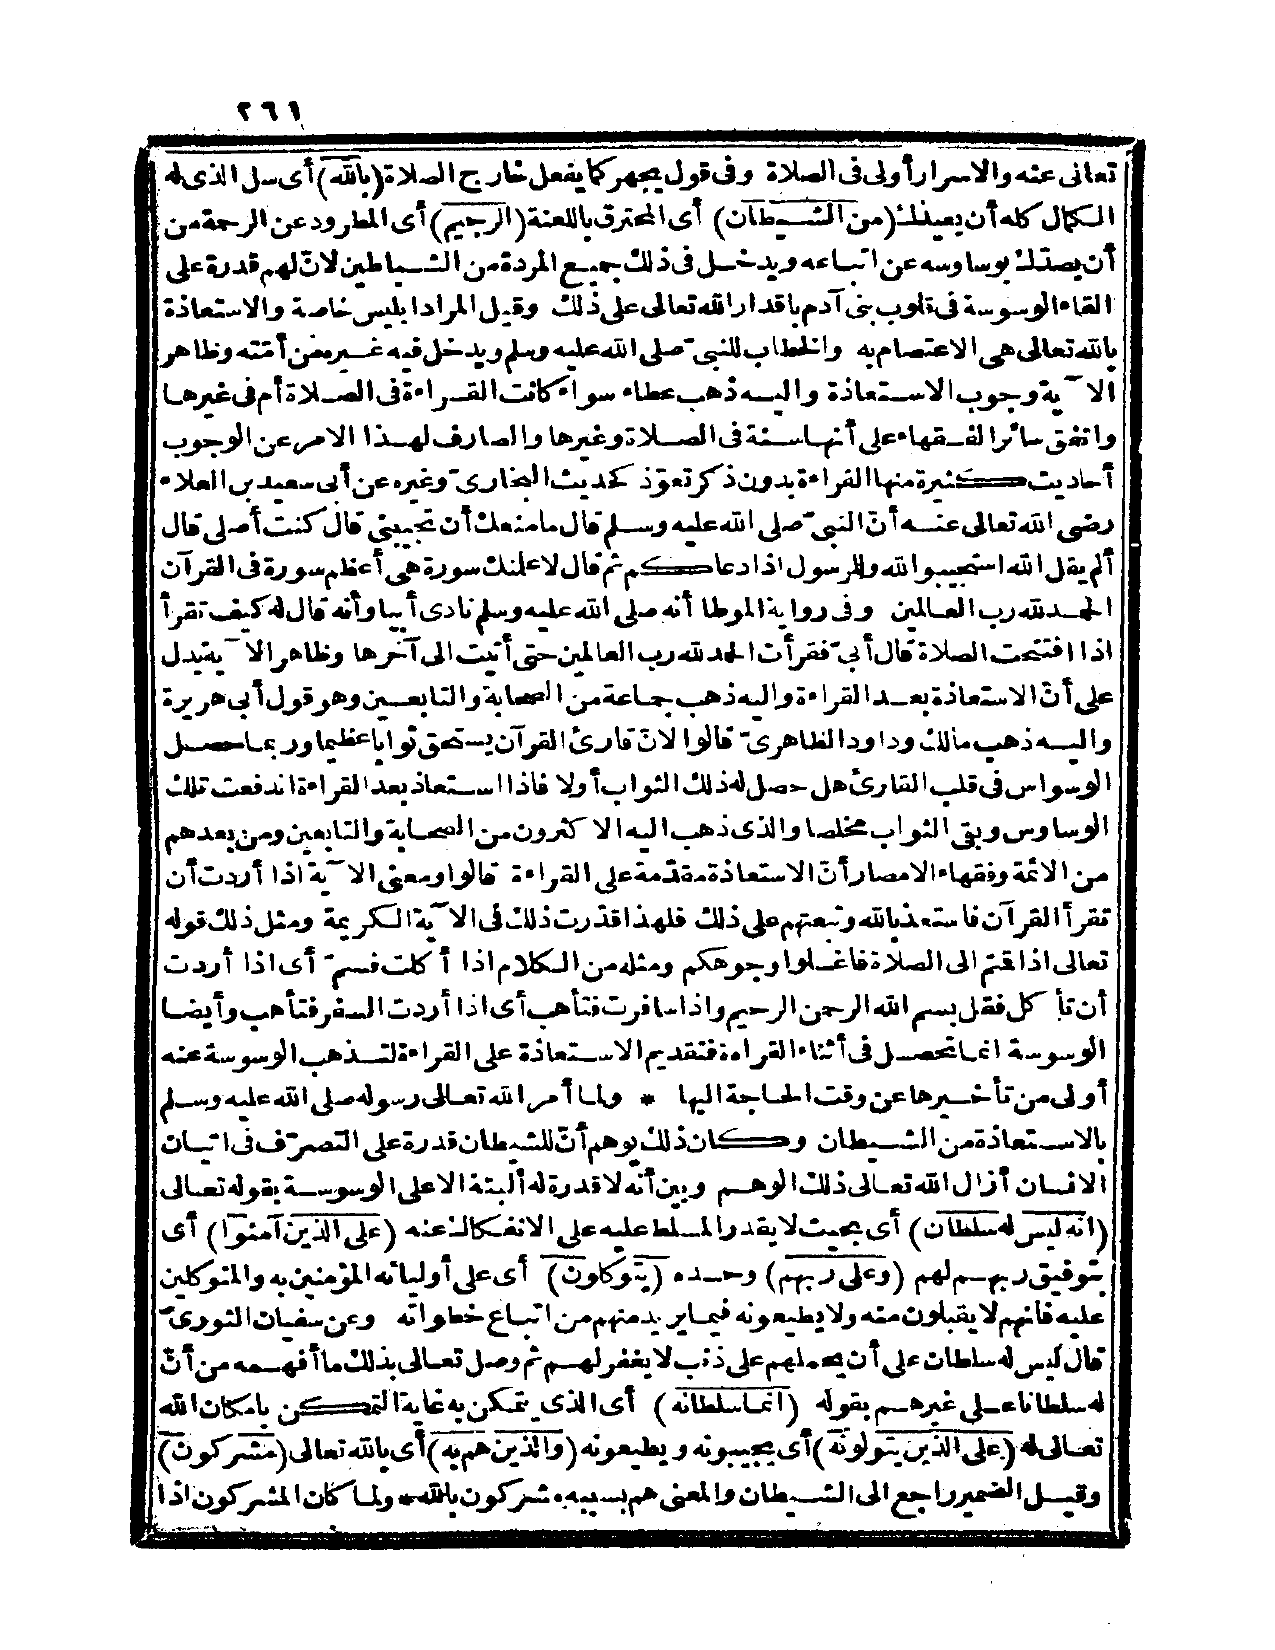 ٢٦١
تعالى عنه والاسرار أولى فى الصلاة وفى قول يجهر كما يفعل خارج الصلاة (بالله) أى سل الذى له
الكمال كله أن يعيذك (من الشيطان) أى المحترق باللعنة (الرجيم) أى المطرود عن الرحمة من
أن يصدّك بوساوسه عن اتباعه ويدخل فى ذلك جميع المردة من الشياطين لانّ لهم قدرة على
القاء الوسوسة فى قلوب بنى آدم باقدار الله تعالى على ذلك وقيل المراد ابليس خاصة والاستعاذة
بالله تعالى هى الاعتصام به والخطاب للنبىّ صلى الله عليه وسلم ويدخل فيه غيره من أمّته وظاهر
الآية وجوب الاستعاذة واليه ذهب عطاء سواء كانت القراءة فى الصلاة أم فى غيرها
واتفق سائر الفقهاء على أنها سنة فى الصلاة وغيرها والصارف لهذا الامر عن الوجوب
أحاديث كثيرة منها القراءة بدون ذكر تعوّذ كحديث البخارىّ وغيره عن أبى سعيد بن المعلاء
رضى الله تعالى عنه أنّ النبىّ صلى الله عليه وسلم قال ما منعك أن تجيبنى قال كنت أصلى قال
ألم يقل الله استجيبوا لله وللرسول اذا دعاكم ثم قال لاعلمنك سورة هى أعظم سورة فى القرآن
الحمد لله رب العالمين وفى رواية الموطا أنه صلى الله عليه وسلم نادى أبيا وأنه قال له كيف تقرأ
اذا افتتحت الصلاة قال أبىّ فقرأت الحمد لله رب العالمين حتى أتيت الى آخرها وظاهر الآية يدل
على أنّ الاستعاذة بعد القراءة واليه ذهب جماعة من الصحابة والتابعين وهو قول أبى هريرة
واليه ذهب مالك وداود الظاهرىّ قالوا لانّ قارئ القرآن يستحق ثوابا عظيما وربما حصل
الوسواس فى قلب القارئ هل حصل له ذلك الثواب أولا فاذا استعاذ بعد القراءة اندفعت تلك
الوساوس وبقى الثواب مخلصا والذى ذهب اليه الاكثرون من الصحابة والتابعين ومن بعدهم
من الائمة وفقهاء الامصار أنّ الاستعاذة مقدّمة على القراءة قالوا ومعنى الآية اذا أردت أن
تقرأ القرآن فاستعذ بالله وتبعتهم على ذلك فلهذا قدّرت ذلك فى الآية الكريمة ومثل ذلك قوله
تعالى اذا قمتم الى الصلاة فاغسلوا وجوهكم ومثله من الكلام اذا أكلت فسمّ أى اذا أردت
أن تأكل فقل بسم الله الرحمن الرحيم واذا سافرت فتأهب أى اذا أردت السفر فتأهب وأيضا
الوسوسة انما تحصل فى أثناء القراءة فتقديم الاستعاذة على القراءة لتذهب الوسوسة عنه
أولى من تأخيرها عن وقت الحاجة اليها * ولما أمر الله تعالى رسوله صلى الله عليه وسلم
بالاستعاذة من الشيطان وكان ذلك يوهم أنّ للشيطان قدرة على التصرّف فى اتيان
الانسان أزال الله تعالى ذلك الوهم وبين أنه لا قدرة له ألبتة الا على الوسوسة بقوله تعالى
(انه ليس له سلطان) أى بحيث لا يقدر المسلط عليه على الانفكاك عنه (على الذين آمنوا) أى
بتوفيق ربهم لهم (وعلى ربهم) وحده (يتوكلون) أى على أوليائه المؤمنين به والمتوكلين
عليه فانهم لا يقبلون منه ولا يطيعونه فيما يريد منهم من اتباع خطواته وعن سفيان الثورىّ
قال ليس له سلطان على أن يحملهم على ذنب لا يغفر لهم ثم وصل تعالى بذلك ما أفهمه من أنّ
له سلطانا على غيرهم بقوله (انما سلطانه) أى الذى يتمكن به غاية التمكن بامكان الله
تعالى له (على الذين يتولونه) أى يجيبونه ويطيعونه (والذين هم به) أى بالله تعالى (مشركون)
وقيل الضمير راجع الى الشيطان والمعنى هم بسببه مشركون بالله * ولما كان المشركون اذا